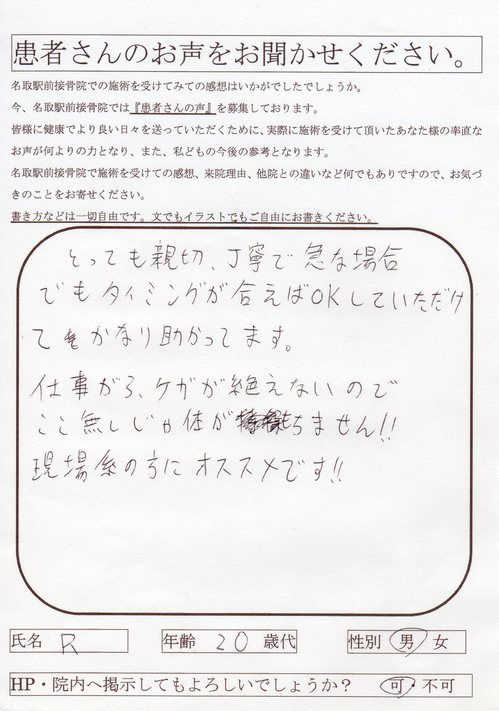 患者さんのお声をお聞かせください。
名取駅前接骨院での施術を受けてみての感想はいかがでしたでしょうか。
今、名取駅前接骨院では『患者さんの声』を募集しております。
皆様に健康でより良い日々を送っていただくために、実際に施術を受けて頂いたあなた様の率直な
お声が何よりの力となり、また、私どもの今後の参考となります。
名取駅前接骨院で施術を受けての感想、来院理由、他院との違いなど何でもありですので、お気づ
きのことをお寄せください。
書き方などは一切自由です。文でもイラストでもご自由にお書きください。
とっても親切、丁寧で急な場合
でもタイミングが合えばOKしていただけ
てかなり助かってます。
仕事がら、ケガが絶えないので
ここ無しじゃ体がちません!!
現場系の方にオススメです!!
氏名 R 年齢 20 歳代 性別 男・女
HP・院内へ掲示してもよろしいでしょうか? 可・不可